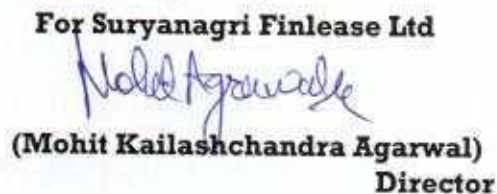 For Suryanagri Finlease Ltd
Mohit Agrawal
(Mohit Kailashchandra Agarwal)
Director